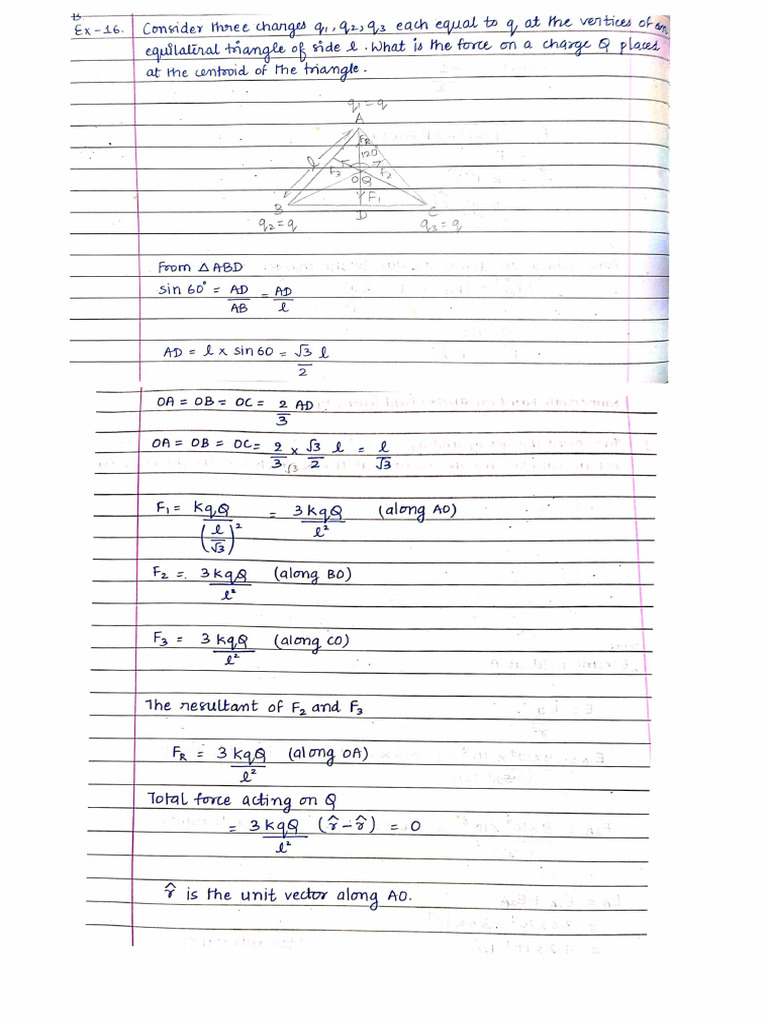 B.
Ex-16. Consider three charges q₁, q₂, q₃ each equal to q at the vertices of an
equilateral triangle of side l. What is the force on a charge Q placed
at the centroid of the triangle.
q₁ = q
A
FR
120
l
F₃ F₂
O Q
F₁
B D C
q₂ = q q₃ = q
From △ABD
sin 60° = AD/AB = AD/l
AD = l x sin 60 = √3/2 l
OA = OB = OC = 2/3 AD
OA = OB = OC = 2/3 x √3/2 l = l/√3
√3
F₁ = KqQ/(l/√3)² = 3kqQ/l² (along AO)
F₂ = 3kqQ/l² (along BO)
F₃ = 3kqQ/l² (along CO)
The resultant of F₂ and F₃
FR = 3kqQ/l² (along OA)
Total force acting on Q
= 3kqQ/l² (r̂ - r̂) = 0
r̂ is the unit vector along AO.